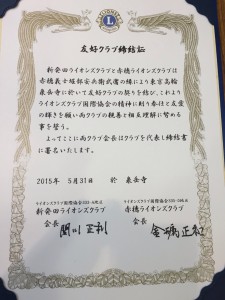 友好クラブ締結証
新発田ライオンズクラブと赤穂ライオンズクラブは
赤穂義士堀部安兵衛武庸の縁により東京高輪
泉岳寺に於いて友好クラブの契りを結び、これより
ライオンズクラブ国際協会の精神に則り奉仕と友愛
の輝きを願い両クラブの親善と相互理解に努める
事を誓う。
よってここに両クラブ会長はクラブを代表し締結書
に署名いたします。
2015年 5月31日 於 泉岳寺
ライオンズクラブ国際協会333-A地区
新発田ライオンズクラブ
会長
ライオンズクラブ国際協会335-D地区
赤穂ライオンズクラブ
会長